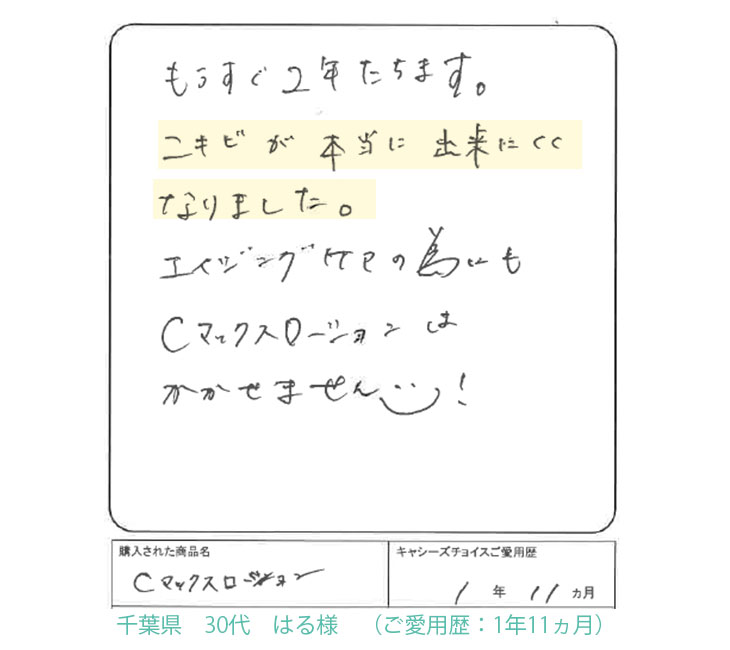 もうすぐ2年たちます。
ニキビが本当に出来にくく
なりました。
エイジングケアの為にも
Cマックスローションは
かかせません!
購入された商品名
キャシーズチョイスご愛用歴
Cマックスローション
1年11ヵ月
千葉県 30代 はる様 （ご愛用歴：1年11ヵ月）